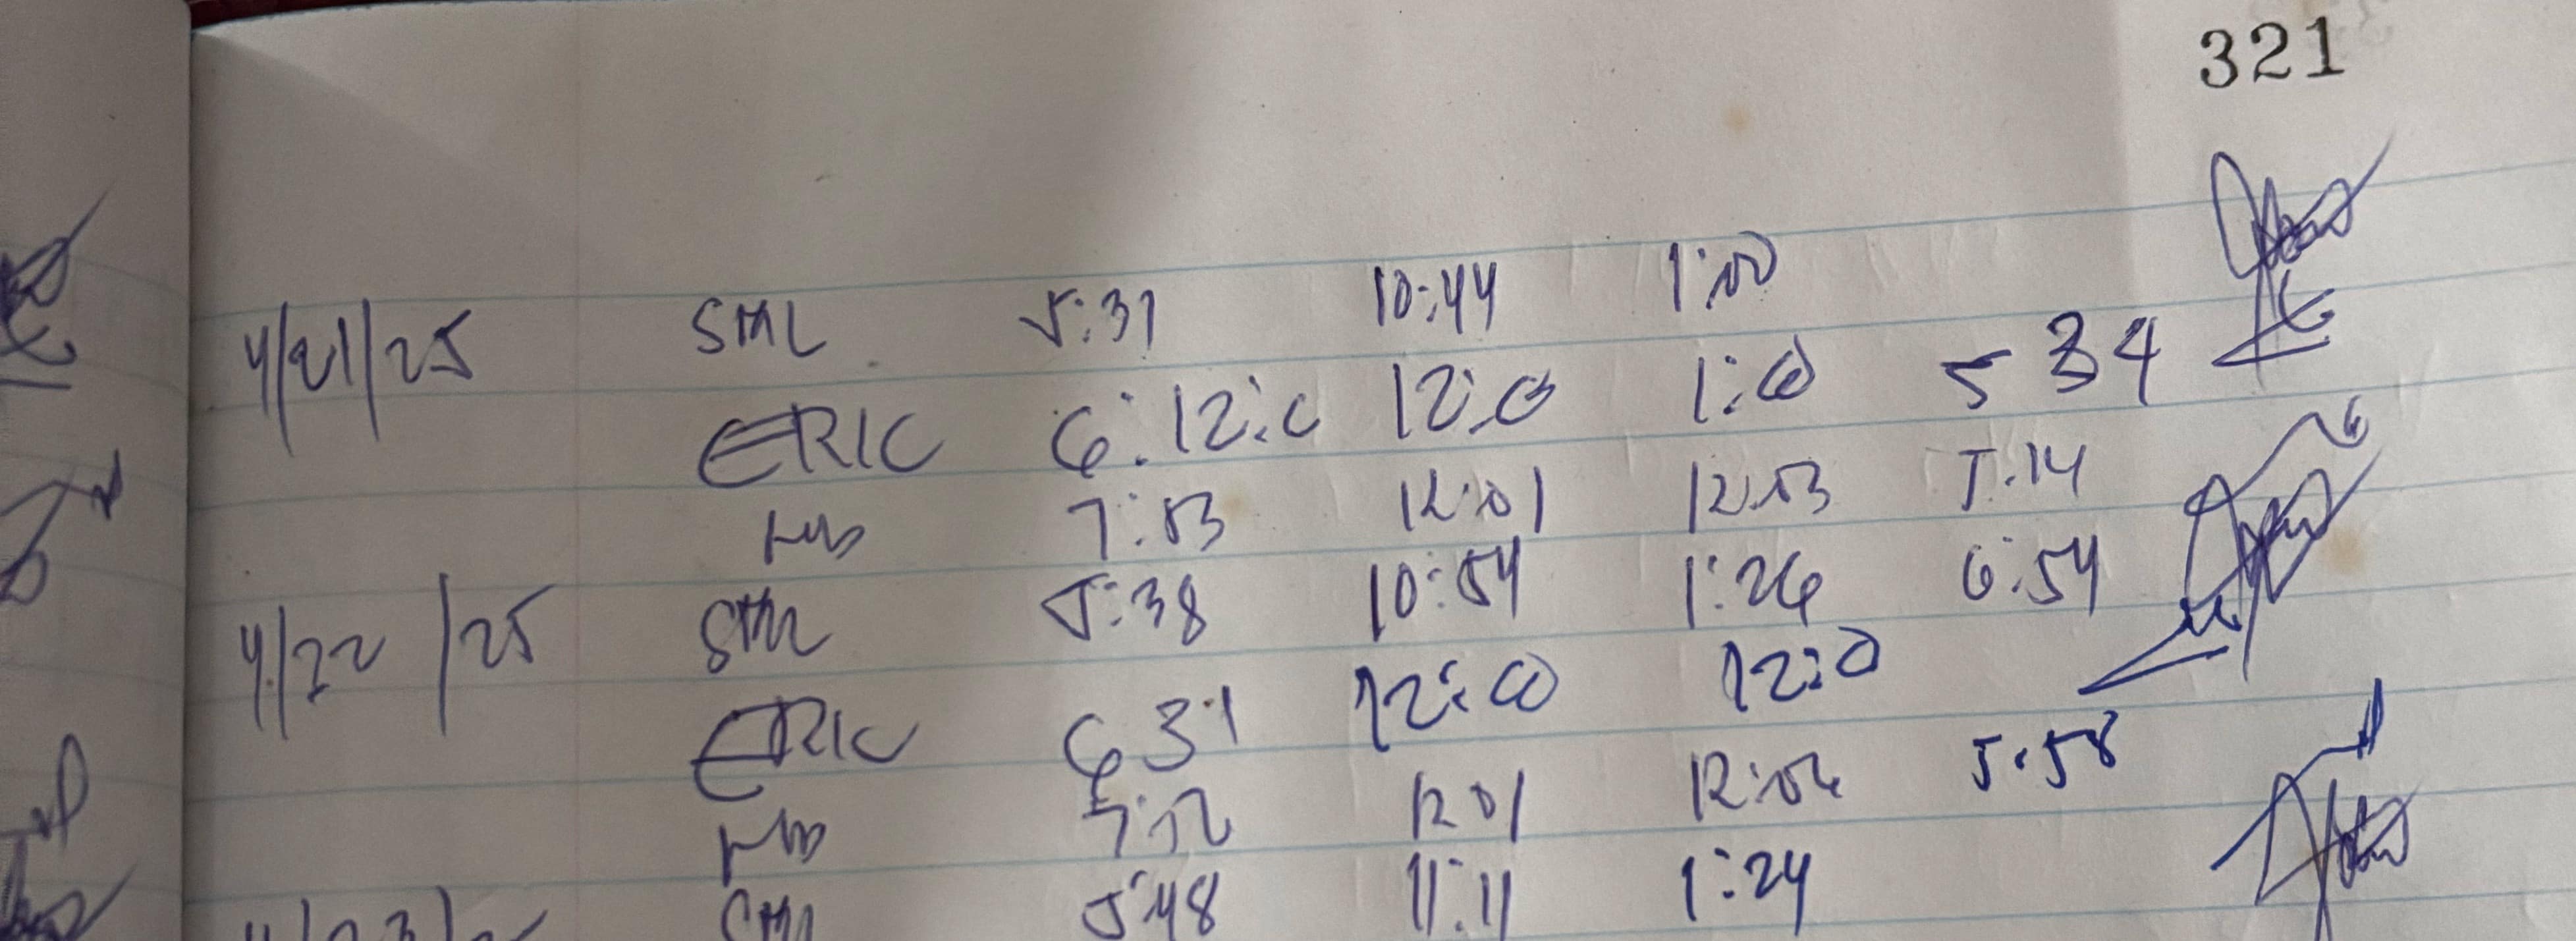 321
4/21/25 SML 5:31 10:44 1:00
ERIC 6:12:c 12:0 1:00 5 34
7:53 12:01 12:53 5:14
4/22/25 SML 5:38 10:54 1:26 6:54
ERIC 6 31 12:00 12:0
7:52 1201 12:56 5:58
SML 5:48 11:11 1:24